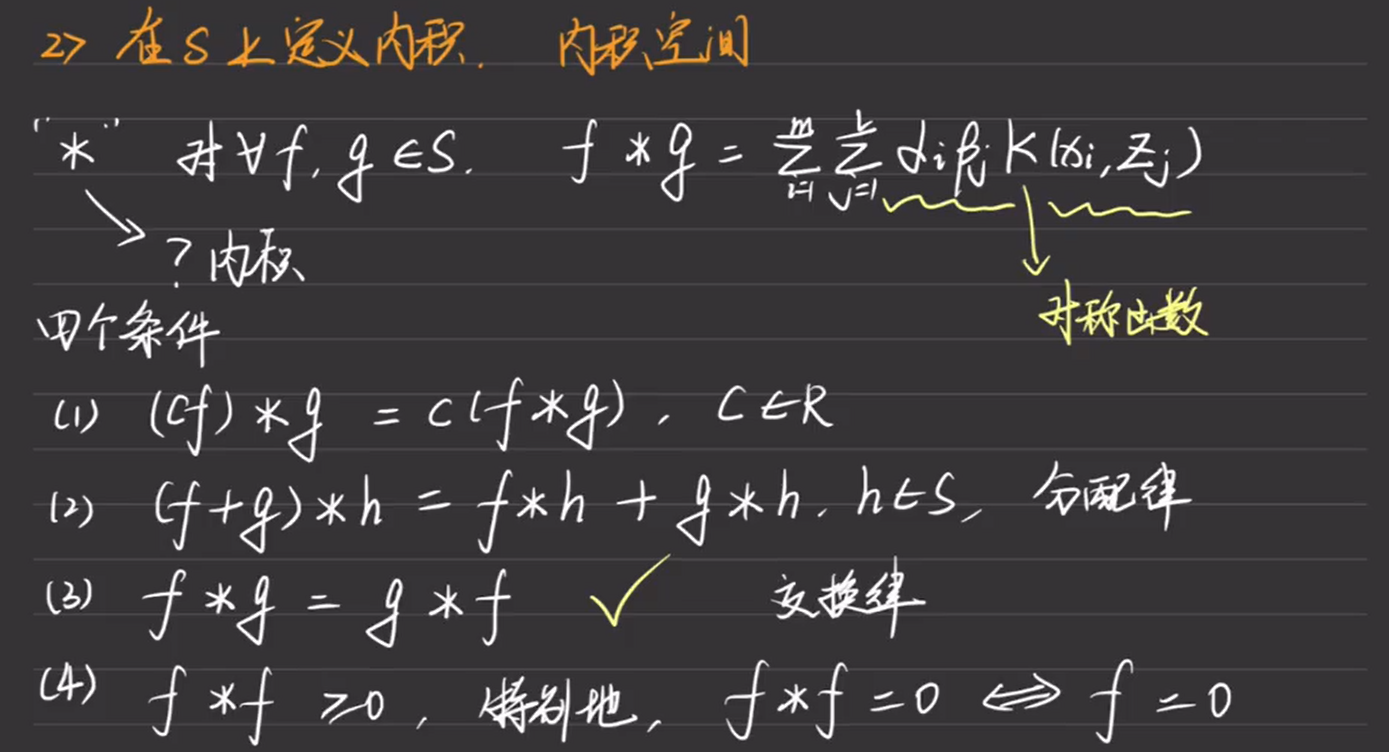 2> 在S上定义内积. 内积空间
"*" 对∀f, g∈S. f * g = ∑_{i=1}^{m} ∑_{j=1}^{l} αiβj K(xi, zj)
? 内积
对称函数
四个条件
(1) (cf) * g = c(f * g), c∈R
(2) (f+g) * h = f * h + g * h. h∈S, 分配律
(3) f * g = g * f ✓ 交换律
(4) f * f ≥ 0, 特别地, f * f = 0 ⇔ f = 0